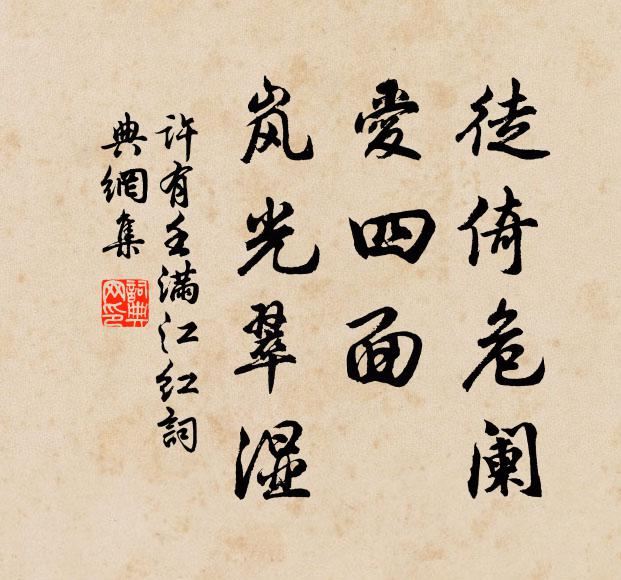 徒倚危阑
爱四面
岚光翠湿
许有壬满江红词
典網集
詞典
网印